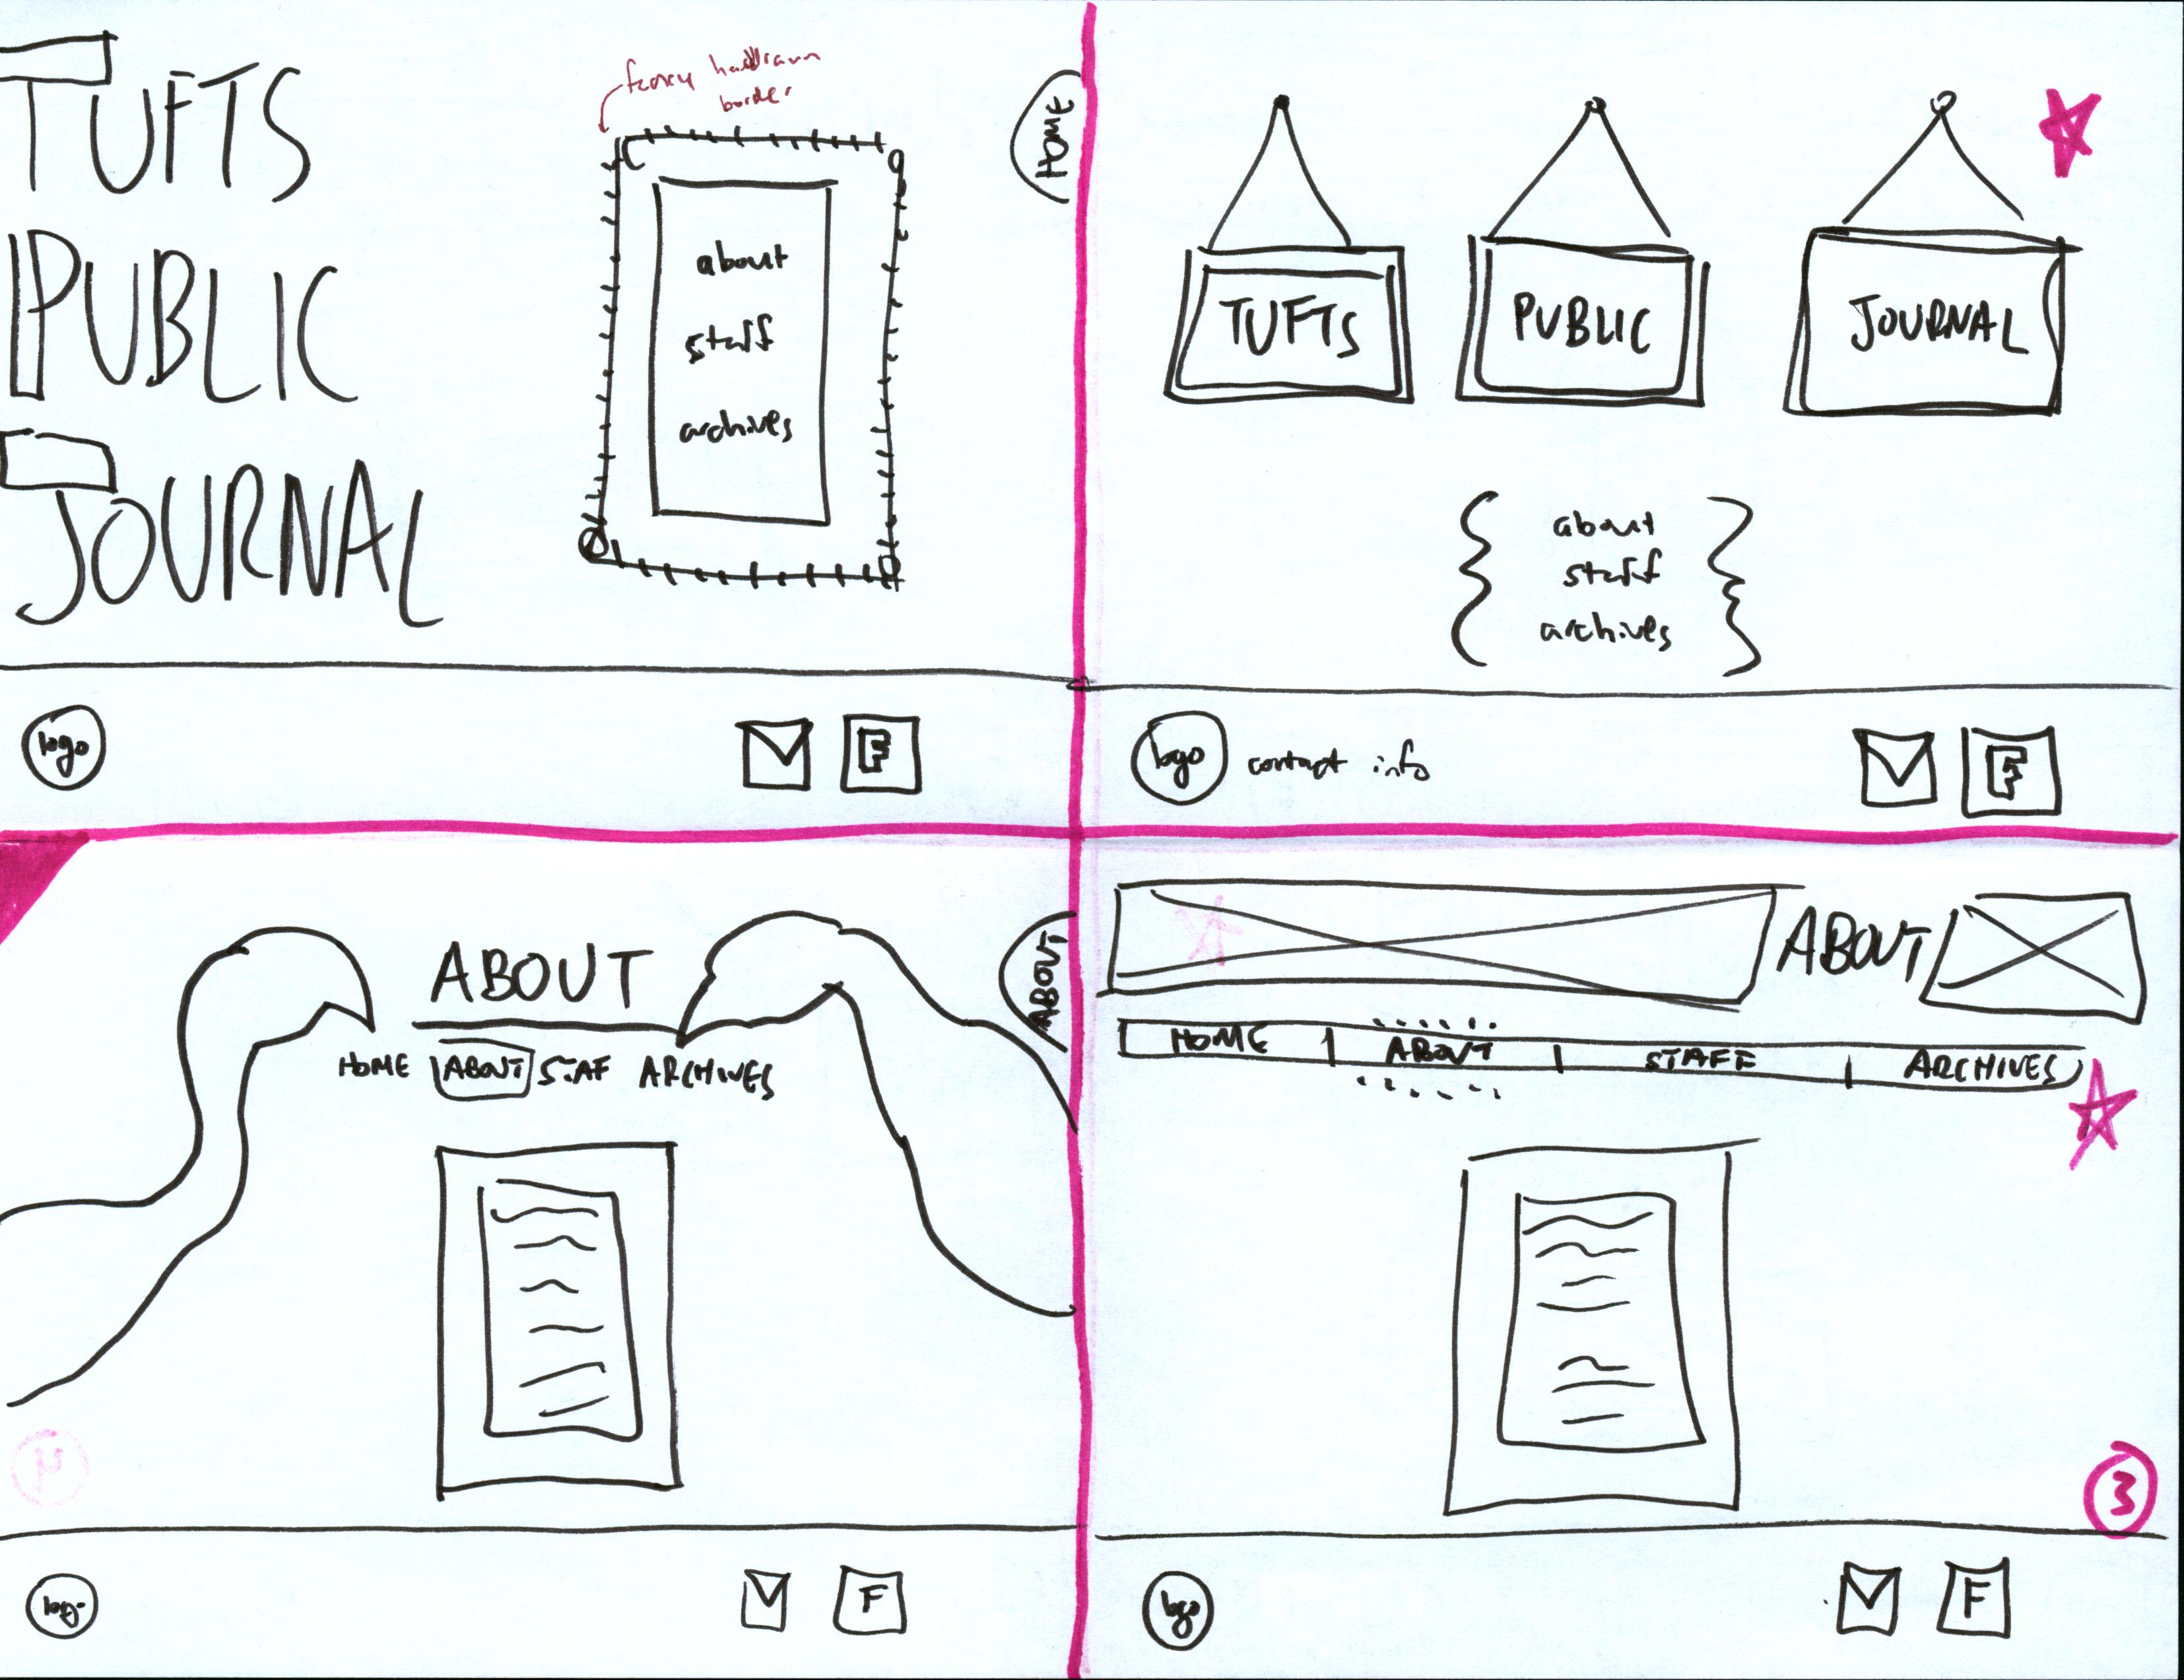 TUFTS
PUBLIC
JOURNAL
fancy handdrawn
border
about
staff
archives
HOME
logo
F
TUFTS
PUBLIC
JOURNAL
about
staff
archives
logo contact info
F
ABOUT
HOME ABOUT STAF ARCHIVES
ABOUT
logo
F
ABOUT
HOME | ABOUT | STAFF | ARCHIVES
3
logo
F